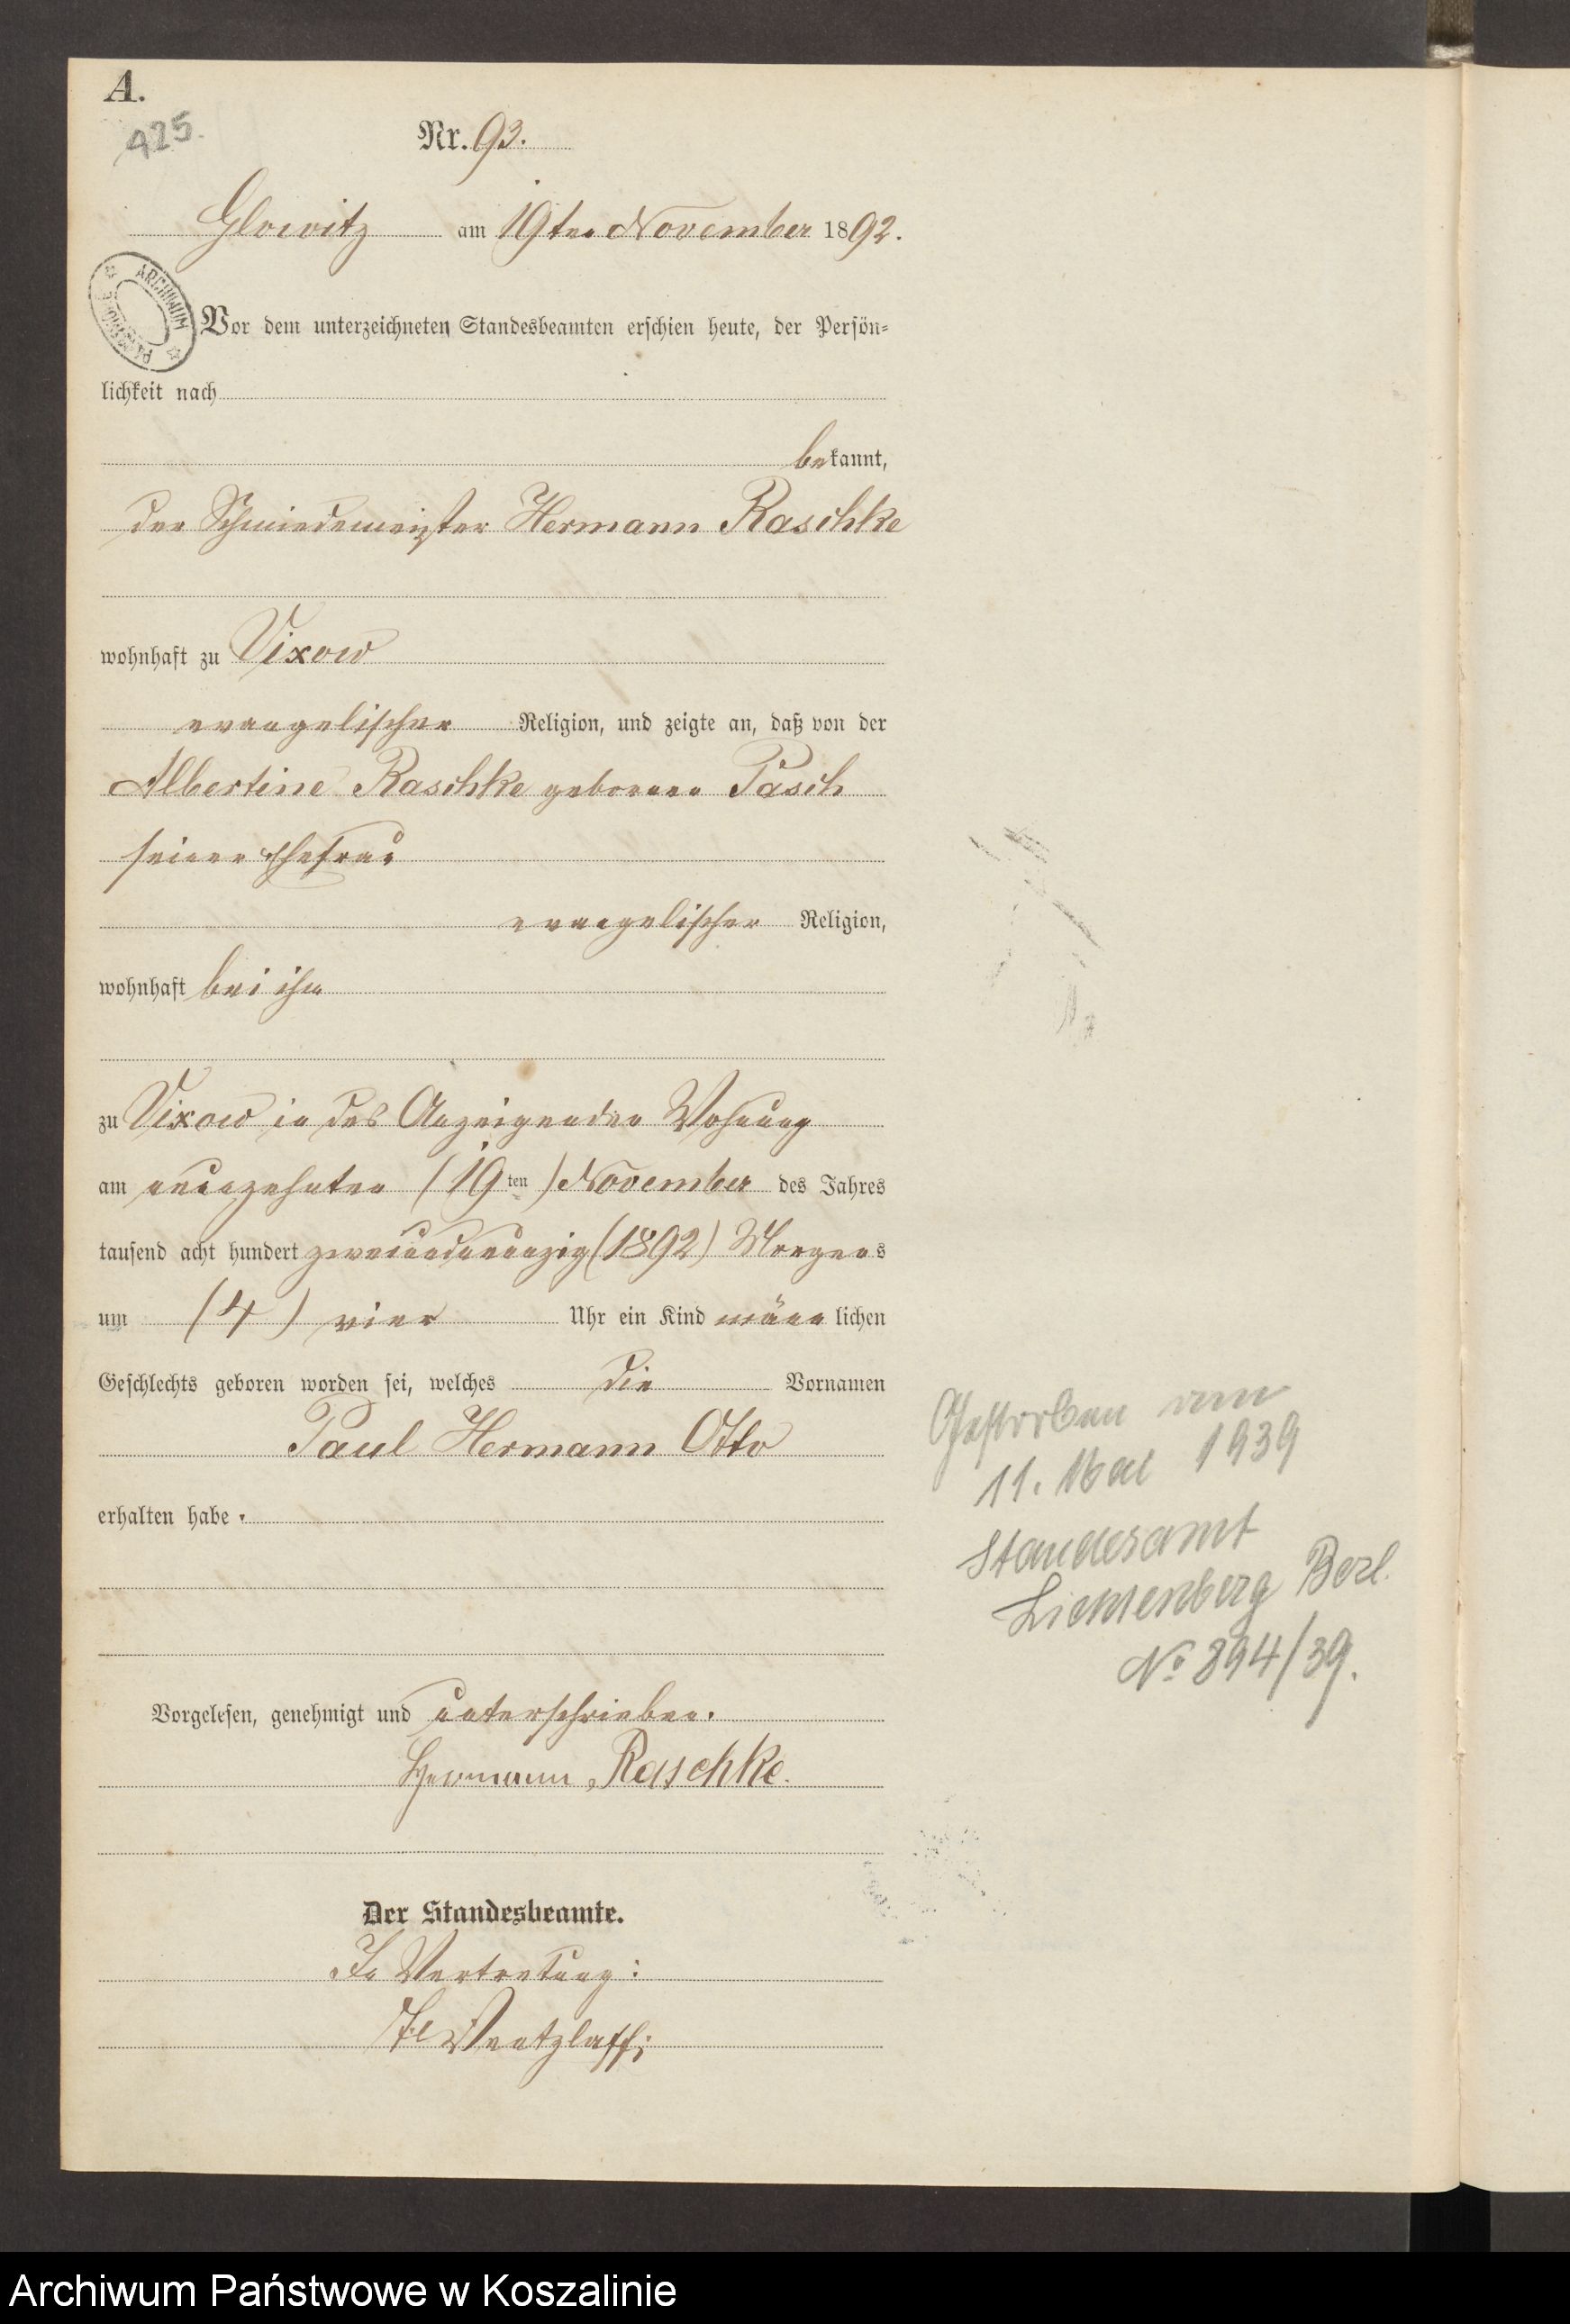 A.
425.
Nr. 93.
Glowitz am 19ten November 1892.
ARCHIWUM
Vor dem unterzeichneten Standesbeamten erschien heute, der Persön=
lichkeit nach
bekannt,
der Schmiedemeister Hermann Raschke
wohnhaft zu Vixow
evangelischer Religion, und zeigte an, daß von der
Albertine Raschke geborenen Pasch
seiner Ehefrau
evangelischer Religion,
wohnhaft bei ihm
zu Vixow in des Anzeigenden Wohnung
am neunzehnten (19ten) November des Jahres
tausend acht hundert zweiundneunzig (1892) Morgens
um (4) vier Uhr ein Kind männlichen
Geschlechts geboren worden sei, welches die Vornamen
Paul Hermann Otto
erhalten habe.
Gestorben am
11. Mai 1939
Standesamt
Lichtenberg Berl.
No 894/39.
Vorgelesen, genehmigt und unterschrieben.
Hermann Raschke.
Der Standesbeamte.
In Vertretung:
Wentzlaff
Archiwum Państwowe w Koszalinie